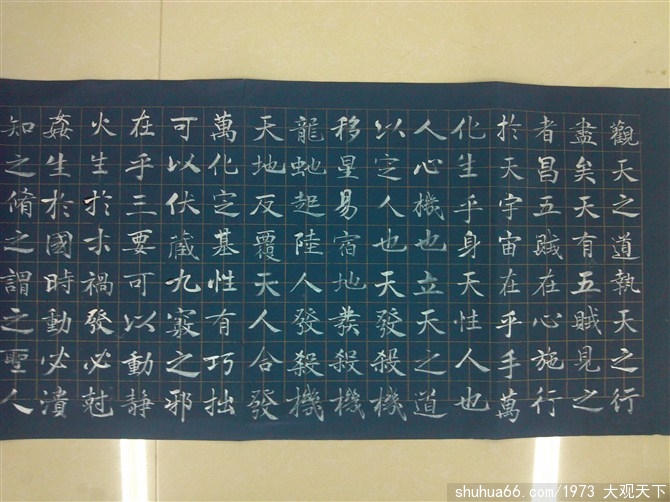 觀天之道執天之行
盡矣天有五賊見之
者昌五賊在心施行
於天宇宙在乎手萬
化生乎身天性人也
人心機也立天之道
以定人也天發殺機
移星易宿地發殺機
龍虵起陸人發殺機
天地反覆天人合發
萬化定基性有巧拙
可以伏藏九竅之邪
在乎三要可以動静
火生於木禍發必尅
姦生於國時動必潰
知之脩之謂之聖人
shuhua66.com/1973 大观天下